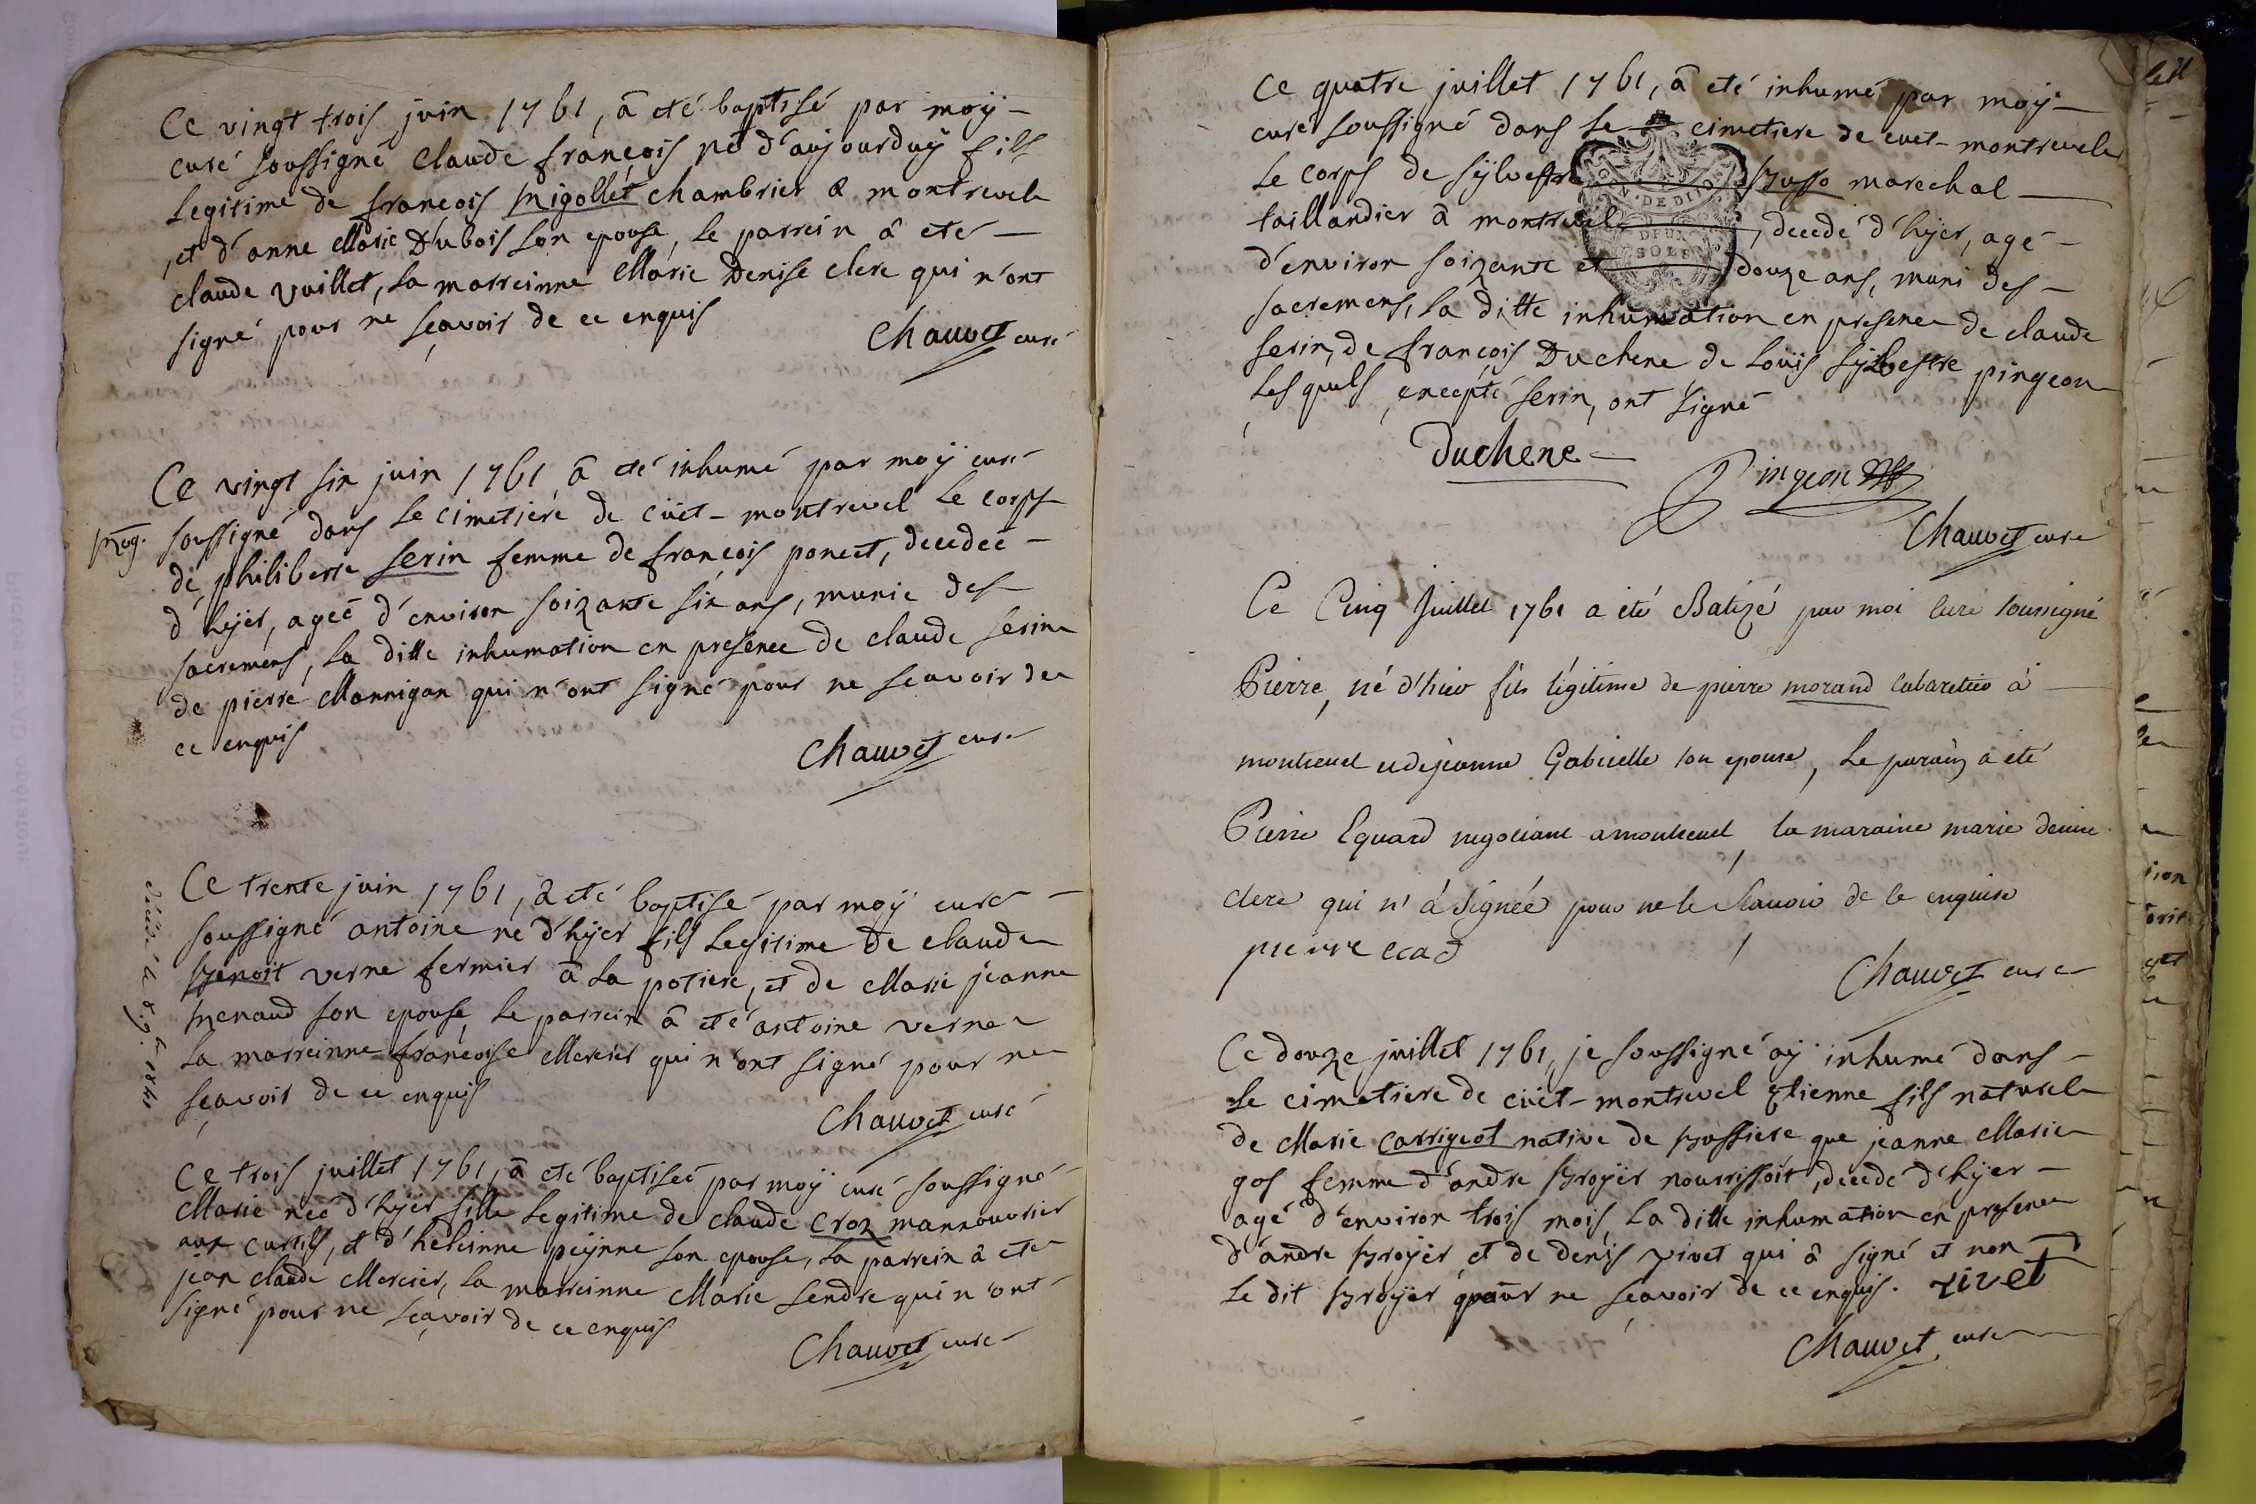 Ce vingt trois juin 1761, â eté baptisé par moÿ
curé soussigné claude françois né d'aujourduÿ fils
Legitime de françois Migollet chambrier a montrevel
et d'anne Marie Dubois son epouse, le parrein â eté
claude vuillet, la marreinne Marie Denise clerc qui n'ont
signé pour ne sçavoir de ce enquis
Chauvet curé
Ce vingt six juin 1761 â eté inhumé par moÿ curé
soussigné dans le cimetiere de cüet-montrevel le corps
de philiberte serin femme de françois poncet, decedeé
d'hÿer, ageé d'environ soizante six ans, munie des
sacremens, la ditte inhumation en presence de claude serin
de pierre Mannigan qui n'ont signé pour ne sçavoir de
ce enquis
Chauvet curé
Ce trente juin 1761, â eté baptisé par moÿ curé
soussigné antoine né d'hÿer fils Legitime de claude
Benoit verne fermier â la potiere, et de Marie jeanne
Menaud son epouse, le parrein â eté antoine verne
la marreinne françoise Mercier qui n'ont signé pour ne
sçavoir de ce enquis
Chauvet curé
Ce trois juillet 1761, â eté baptiseé par moÿ curé soussigné
Marie neé d'hÿer fille Legitime de claude croz mannouvrier
aux curtils, et d'heleinne peÿnne son epouse, la parrein â eté
jean claude Mercier, la marreinne Marie sendre qui n'ont
signé pour ne sçavoir de ce enquis
Chauvet curé
Ce quatre juillet 1761, â eté inhumé par moÿ
curé soussigné dans le cimetiere de cuet-montrevel
le corps de sÿlvestre Busso marechal
taillandier â montrevel, decedé d'hÿer, agé
d'environ soizante et douze ans, muni des
sacremens, la ditte inhumation en presence de claude
serin, de françois Duchene de Loüis sÿlvestre pingeon
les quels, excepté serin, ont signé
DEUX
SOLS
Duchene
Pingeon
Chauvet curé
Ce Cinq Juillet 1761 a été Batizé par moi Curé soussigné
Pierre, né d'hier fils légitime de pierre morand Cabaretier à
montrevel et de jeanne Gabrielle son epouse, Le parain a été
Pierre Equard negociant a montrevel, la maraine marie denise
clerc qui n'á signée pour ne le sçauoir de ce enquise
pierre ecad
Chauvet curé
Ce douze juillet 1761, je soussigné aÿ inhumé dans
le cimetiere de cüet-montrevel Etienne fils naturel
de Marie carrigeot native de Bussiere que jeanne Marie
gos femme d'andre Broÿer nourrissoit, decedé d'hÿer
agé d'environ trois mois, la ditte inhumation en presence
d'andre Broÿer, et de denis vivet qui â signé et non
le dit Broÿer pour ne sçavoir de ce enquis. vivet
Chauvet curé